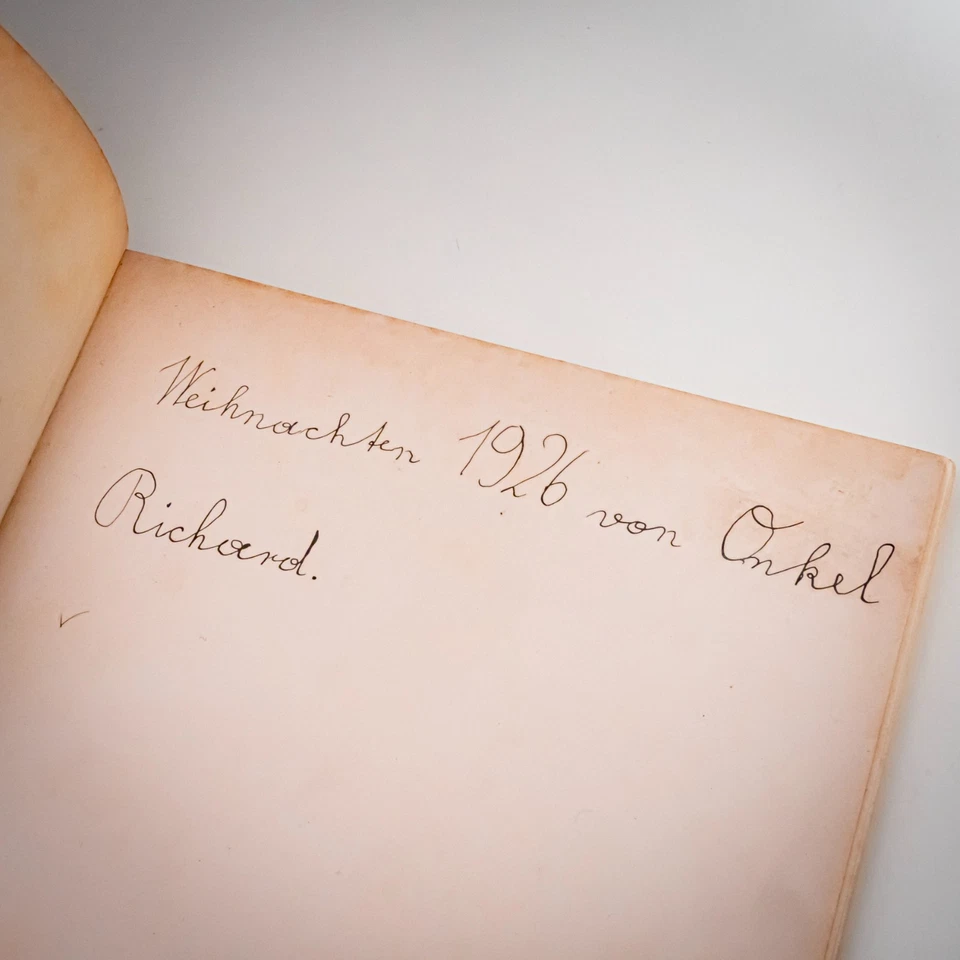 Weihnachten 1926 von Onkel
Richard.